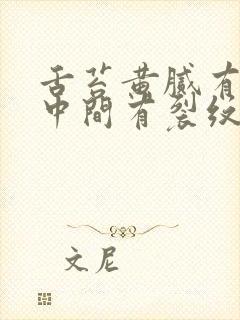 舌苔黄腻有
中间有裂纹
文尼